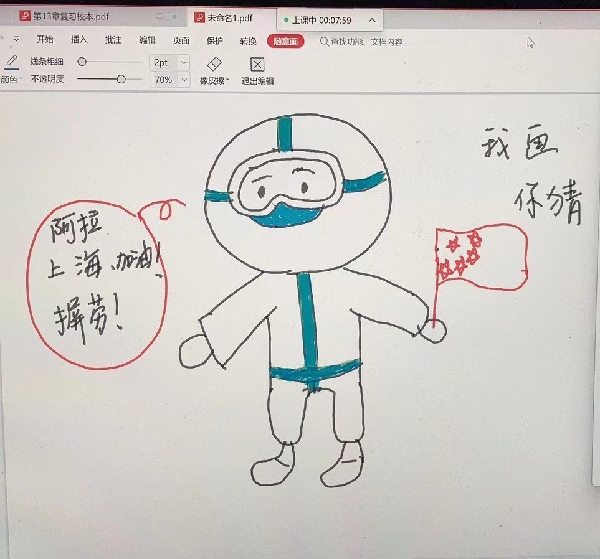 第13章复习校本.pdf 未命名1.pdf 上课中 00:07:59
开始 插入 批注 编辑 页面 保护 转换 随意画 查找功能、文档内容
线条粗细 2pt
颜色 不透明度 70% 橡皮擦 退出编辑
我画
你猜
阿拉
上海,加油!
摒劳!